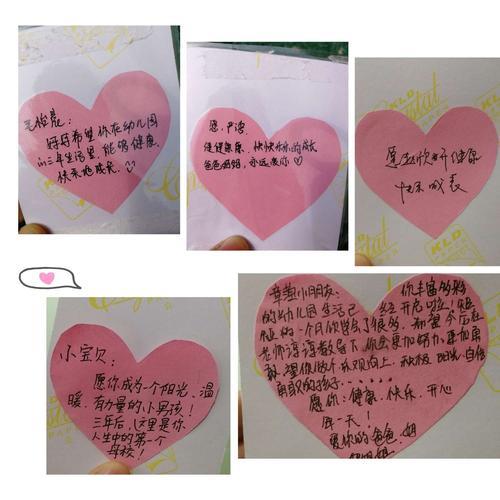 妈妈希望你在幼儿园
的三年生活里，能够健康、
快乐地成长。
愿，严湾
健健康康、快快乐乐的成长
爸爸妈妈，永远爱你
健康
小宝贝：
愿你成为一个阳光、温
暖、有力量的小男孩！
三年后，这里是你
人生中的第一个
母校！
小朋友：
你丰富多彩
的幼儿园生活已经开启啦！短
短的一个月你学会了很多，希望今后在
老师谆谆教导下，你会更加努力，更加
积极 阳光 自信
的孩子......
愿你：健康、快乐、开心
每一天！
爱你的爸爸、妈
KLD